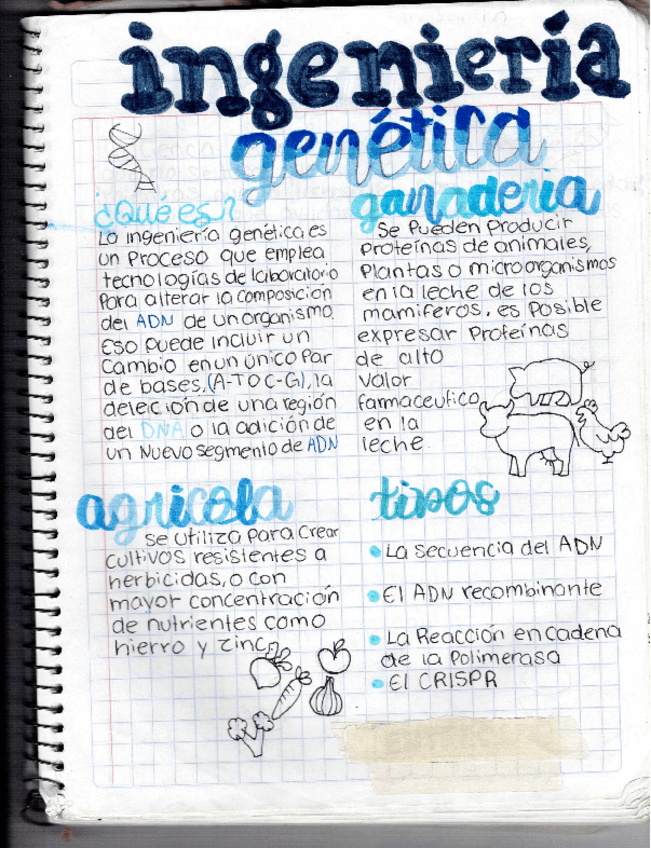 ingeniería
genética
¿Qué es?
La ingeniería genética es
un proceso que emplea
tecnologías de laboratorio
para alterar la composición
del ADN de un organismo.
Eso puede incluir un
cambio en un único par
de bases, (A-T o C-G), la
deleción de una región
del DNA o la adición de
un nuevo segmento de ADN
ganaderia
Se pueden producir
proteínas de animales,
plantas o microorganismos
en la leche de los
mamiferos. es posible
expresar proteínas
de alto
valor
farmaceutico
en la
leche.
agricola
se utiliza para crear
cultivos resistentes a
herbicidas, o con
mayor concentración
de nutrientes como
hierro y zinc.
tipos
La secuencia del ADN
El ADN recombinante
La Reacción en cadena
de la polimerasa
El CRISPR